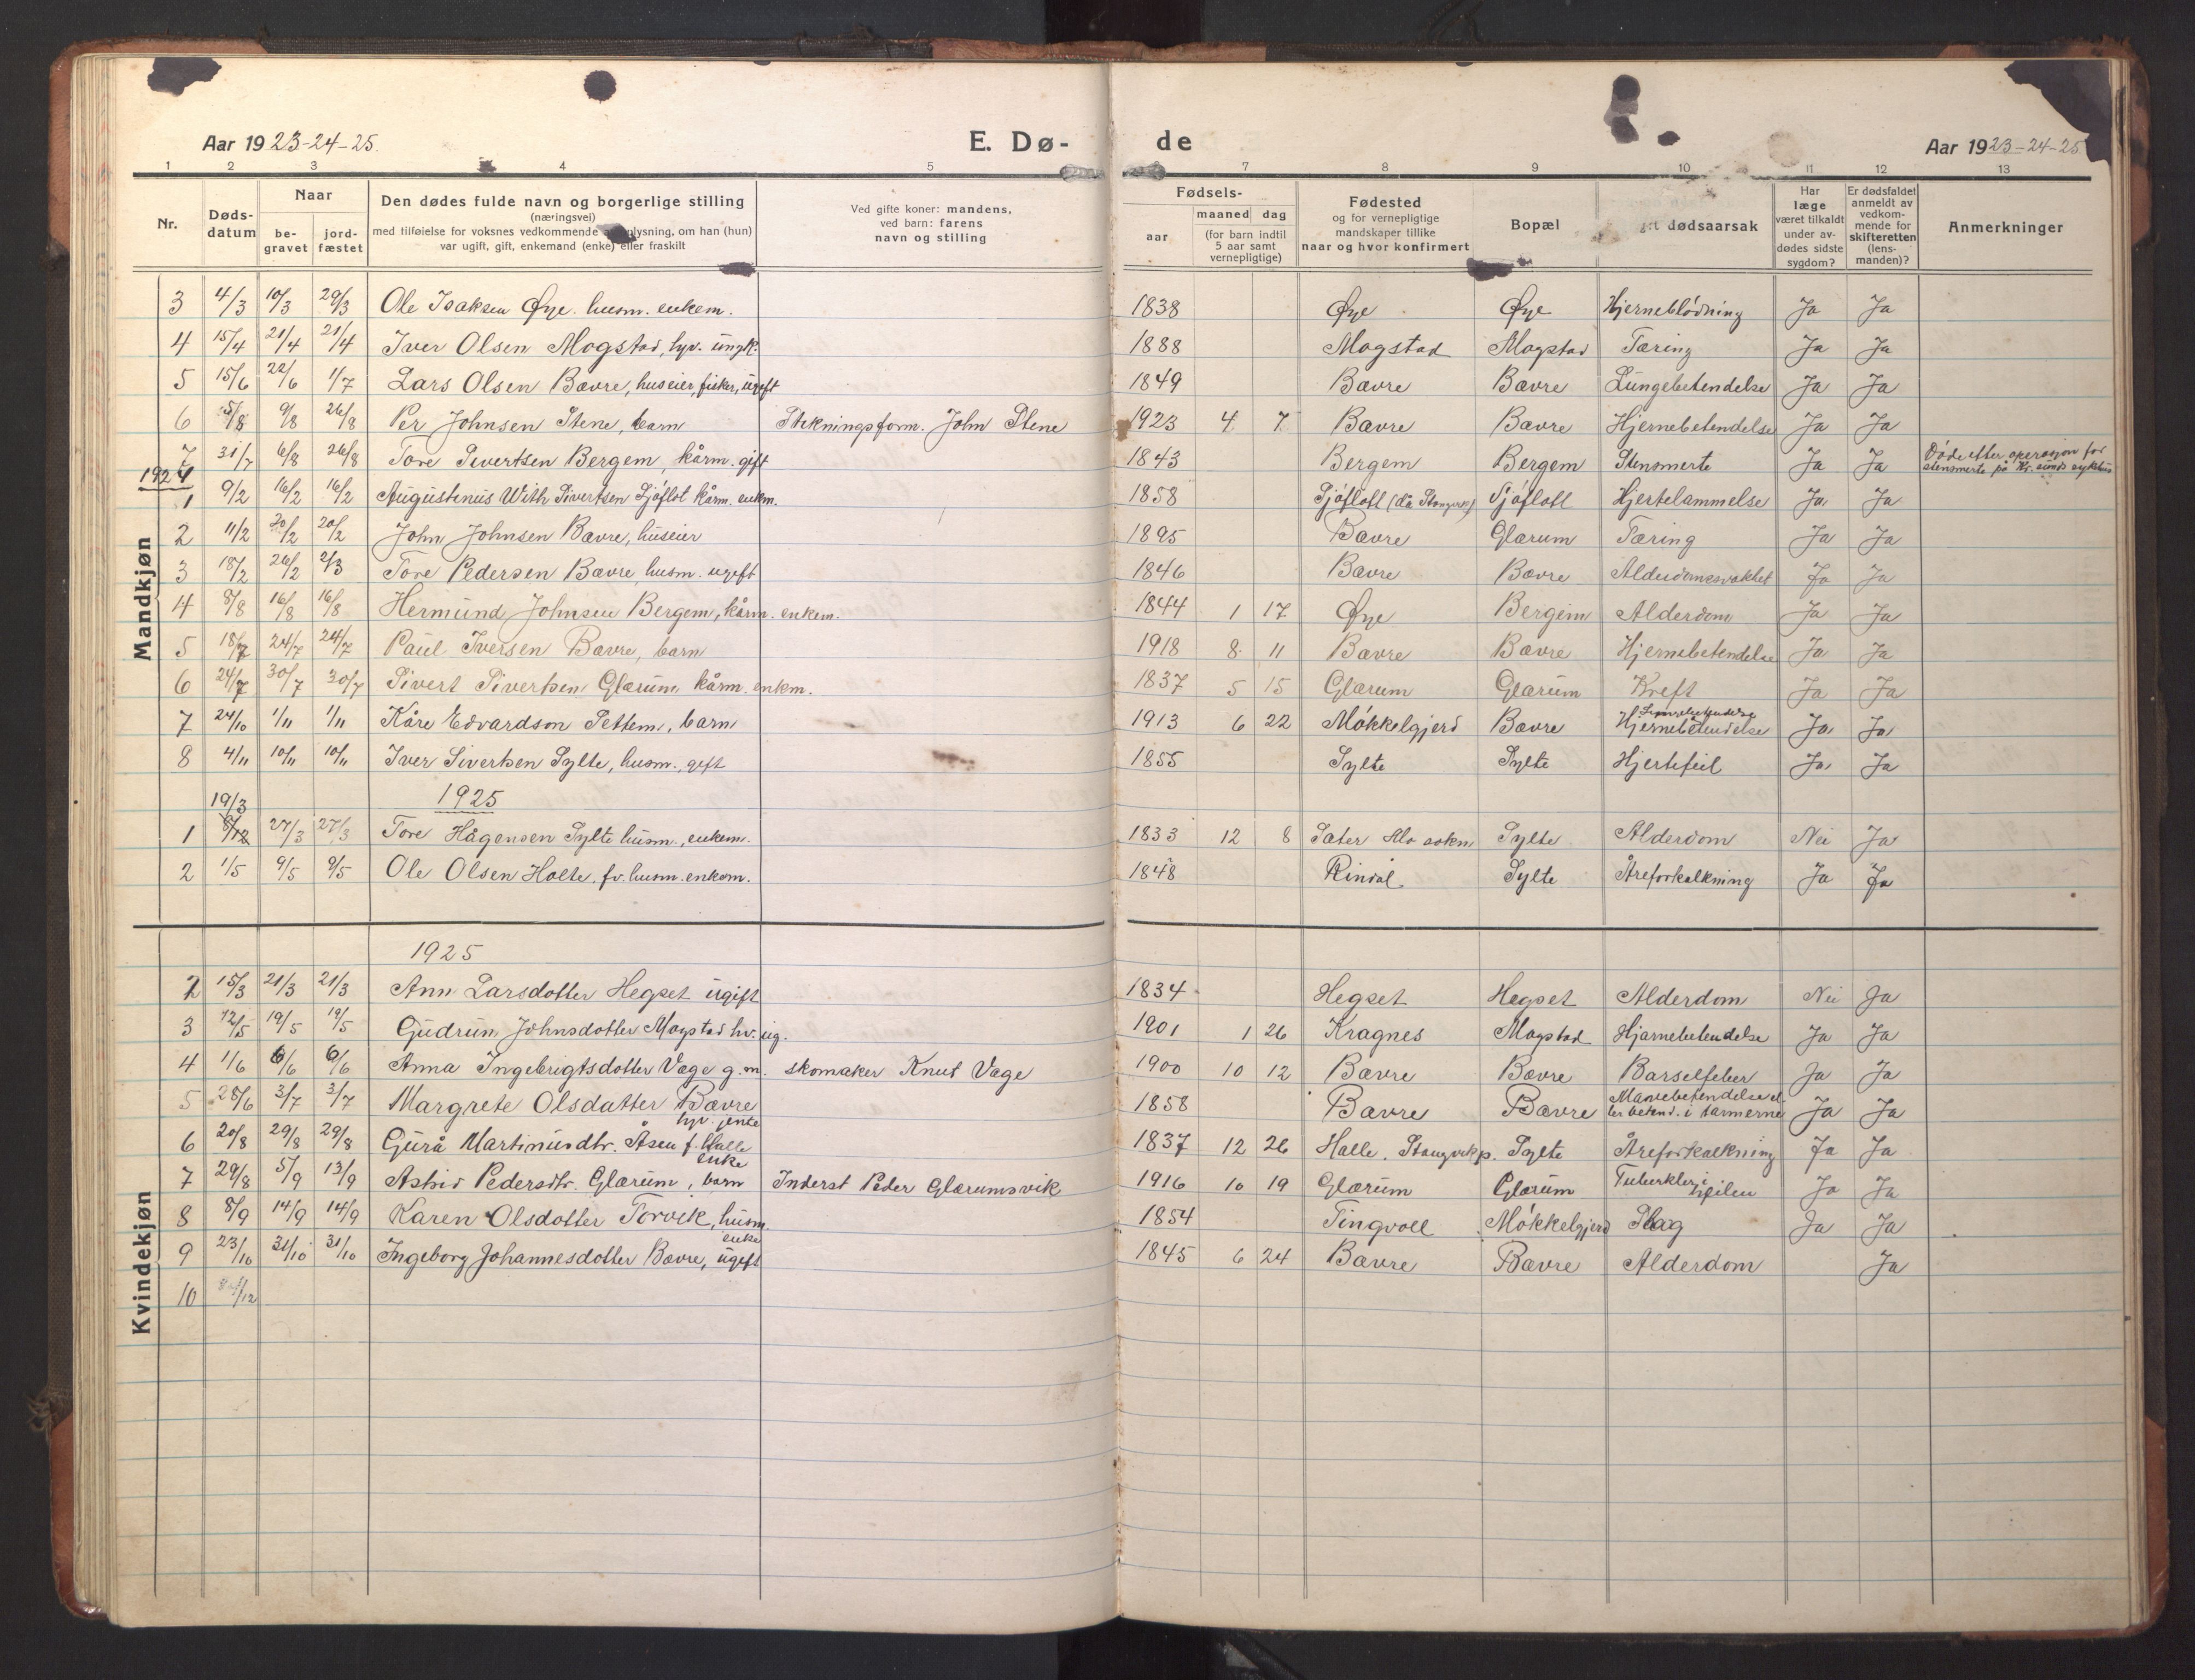 Aar 1923-24-25. E. Dø- de Aar 1923-24-25.
1 2 3 4 5 7 8 9 10 11 12 13
Nr. Døds-datum Naar be-gravet jord-fæstet Den dødes fulde navn og borgerlige stilling (næringsvei) med tilføielse for voksnes vedkommende av oplysning, om han (hun) var ugift, gift, enkemand (enke) eller fraskilt Ved gifte koner: mandens, ved barn: farens navn og stilling Fødsels- aar maaned dag (for barn indtil 5 aar samt vernepligtige) Fødested og for vernepligtige mandskaper tillike naar og hvor konfirmert Bopæl dødsaarsak Har læge været tilkaldt under av-dødes sidste sygdom? Er dødsfaldet anmeldt av vedkom-mende for skifteretten (lens-manden)? Anmerkninger
Mandkjøn
3 4/3 10/3 29/3 Ole Isaksen Øye. husm. enkem. 1838 Øye Øye Hjerneblödning Ja Ja
4 15/4 21/4 21/4 Iver Olsen Mogstad, hjv. ungk. 1888 Mogstad Mogstad Tæring Ja Ja
5 15/6 22/6 1/7 Lars Olsen Bævre, huseier, fisker, ugift 1849 Bævre Bævre Lungebetendelse Ja Ja
6 5/8 9/8 26/8 Per Johnsen Stene, barn Stikningsform. John Stene 1923 4 7 Bævre Bævre Hjernebetendelse Ja Ja
7 31/7 6/8 26/8 Tore Sivertsen Bergem, kårm. gift 1843 Bergem Bergem Stensmerte Ja Ja Döde efter operasjon for stensmerte på Kr.sunds sykehus
1924
1 9/2 16/2 16/2 Augustinius With Sivertsen Sjöflot kårm. enkm. 1858 Sjöflott Sjöflott Hjertelammelse Ja Ja
2 11/2 20/2 20/2 John Johnsen Bævre, huseier 1895 Bævre Glærum Tæring Ja Ja
3 18/2 26/2 2/3 Tore Pedersen Bævre, husm. ugift 1846 Bævre Bævre Alderdomssvakhet Ja Ja
4 8/8 16/8 16/8 Hermund Johnsen Bergem, kårm. enkem. 1844 1 17 Øye Bergem Alderdom Ja Ja
5 18/7 24/7 24/7 Paul Iversen Bævre, barn 1918 8 11 Bævre Bævre Hjernebetendelse Ja Ja
6 24/7 30/7 30/7 Sivert Sivertsen Glærum kårm. enkm. 1837 5 15 Glærum Glærum Kreft Ja Ja
7 24/10 1/11 1/11 Kåre Edvardson Settem, barn 1913 6 22 Mökkelgjerd Bævre Hjernebetendelse Ja Ja
8 4/11 10/11 10/11 Iver Sivertsen Sylte, husm., gift 1855 Sylte Sylte Hjertefeil Ja Ja
1925
1 19/3 8/12 27/3 27/3 Tore Hågensen Sylte husm., enkem. 1833 12 8 Sæter sokn Sylte Alderdom Nei Ja
2 1/5 9/5 9/5 Ole Olsen Holte, fv. husm. enkem. 1848 Rindal Sylte Åreforkalkning Ja Ja
Kvindekjøn
1925
2 15/3 21/3 21/3 Ann Larsdotter Hegset ugift 1834 Hegset Hegset Alderdom Nei Ja
3 12/5 19/5 19/5 Gudrun Johnsdotter Mogstad hv. ug. 1901 1 26 Kragnes Mogstad Hjernebetendelse Ja Ja
4 1/6 6/6 6/6 Anna Ingebrigtsdotter Våge g.m. skomaker Knut Våge 1900 10 12 Bævre Bævre Barselfeber Ja Ja
5 28/6 3/7 3/7 Margrete Olsdatter Bævre hjv. jente 1858 Bævre Bævre Mavebetendelse el-ler betend. i tarmerne Ja Ja
6 20/8 29/8 29/8 Gurå Martinusdtr. Åsen f. Halle enke 1837 12 26 Halle. Stangvik p. Sylte Åreforkalkning Ja Ja
7 29/8 5/9 13/9 Astrid Pedersdtr. Glærum, barn Inderst Peder Glærumsvik 1916 10 19 Glærum Glærum Tuberkler i Ja Ja
8 8/9 14/9 14/9 Karen Olsdotter Torvik, husm. enke 1854 Tingvoll Mökkelgjerd Slag Ja Ja
9 23/10 31/10 31/10 Ingeborg Johannesdotter Bævre, ugift 1845 6 24 Bævre Bævre Alderdom Ja
10